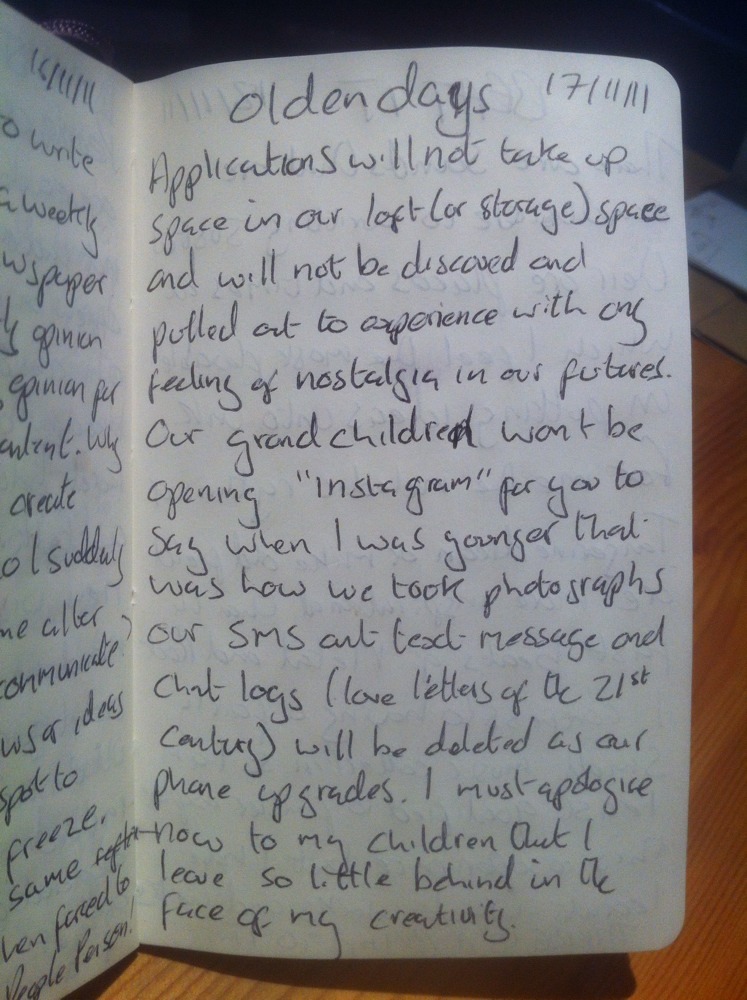 16/11/11
to write
a weekly
wspaper
opinion
opinion for
content. Why
create
o I suddenly
me after
communicate
ws or ideas
spot to
freeze.
same
hen forced to
People Person!
Olden days 17/11/11
Applications will not take up
space in our loft (or storage) space
and will not be discoved and
pulled out to experience with any
feeling of nostalgia in our futures.
Our grandchildren wont be
opening "Instagram" for you to
say when I was younger that
was how we took photographs
our SMS text message and
Chat logs (love letters of the 21st
Century) will be deleted as our
phone upgrades. I must apologice
now to my children that I
leave so little behind in the
face of my creativity.